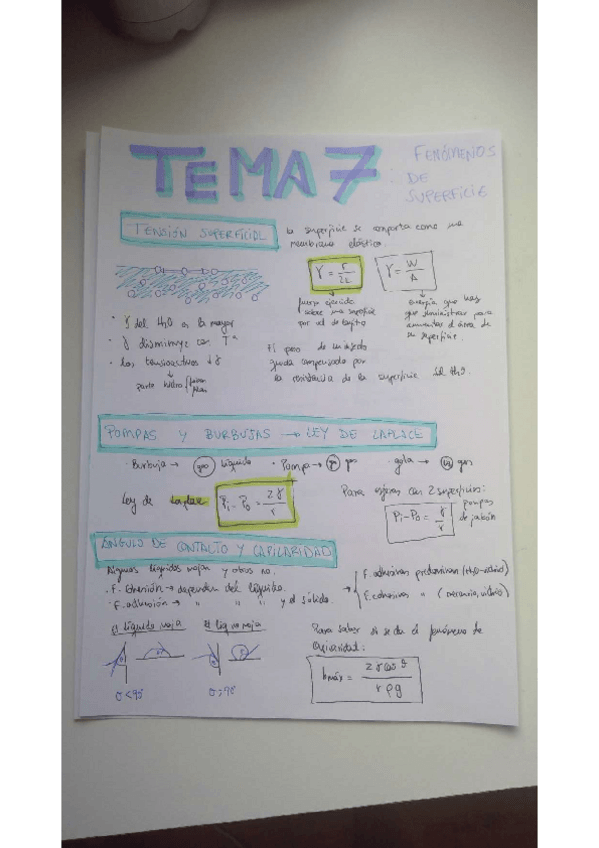 TEMA 7: FENÓMENOS DE SUPERFICIE
TENSIÓN SUPERFICIAL
la superficie se comporta como una
membrana elástica.
γ = F/2L
γ = W/A
fuerza ejercida
sobre una superficie
por ud de longitud
energía que hay
que suministrar para
aumentar el área de
su superficie.
· γ del H2O es la mayor
· γ disminuye con Tª
· los tensioactivos ↓γ
parte hidro
El peso de un insecto
queda compensado por
la resistencia de la superficie del H2O.
POMPAS Y BURBUJAS → LEY DE LAPLACE
· Burbuja → gas líquido · Pompa → gas · gota → gas
Ley de Laplace
Pi - Po = 2γ/r
Para esferas con 2 superficies:
pompas
de jabón
ÁNGULO DE CONTACTO Y CAPILARIDAD
Algunos líquidos mojan y otros no.
· F. cohesión → dependen del líquido.
· F. adhesión → " " " y el sólido.
F. adhesivas predominan (H2O-vidrio)
F. cohesivas " (mercurio, vidrio)
El líquido moja
El líq no moja
θ < 90º
Para saber si se da el fenómeno de
capilaridad:
hmáx = 2γ cos θ / r ρ g